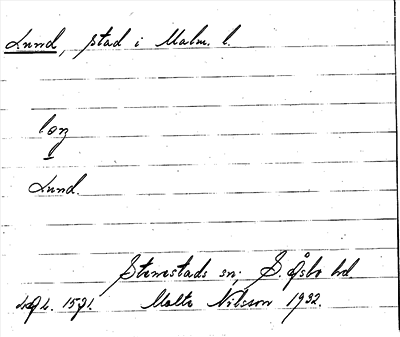 Lund, stad i Malm. l.
Lund.
Stenestads sn; S. Åsbo hd.
Malte Nilsson 1932.